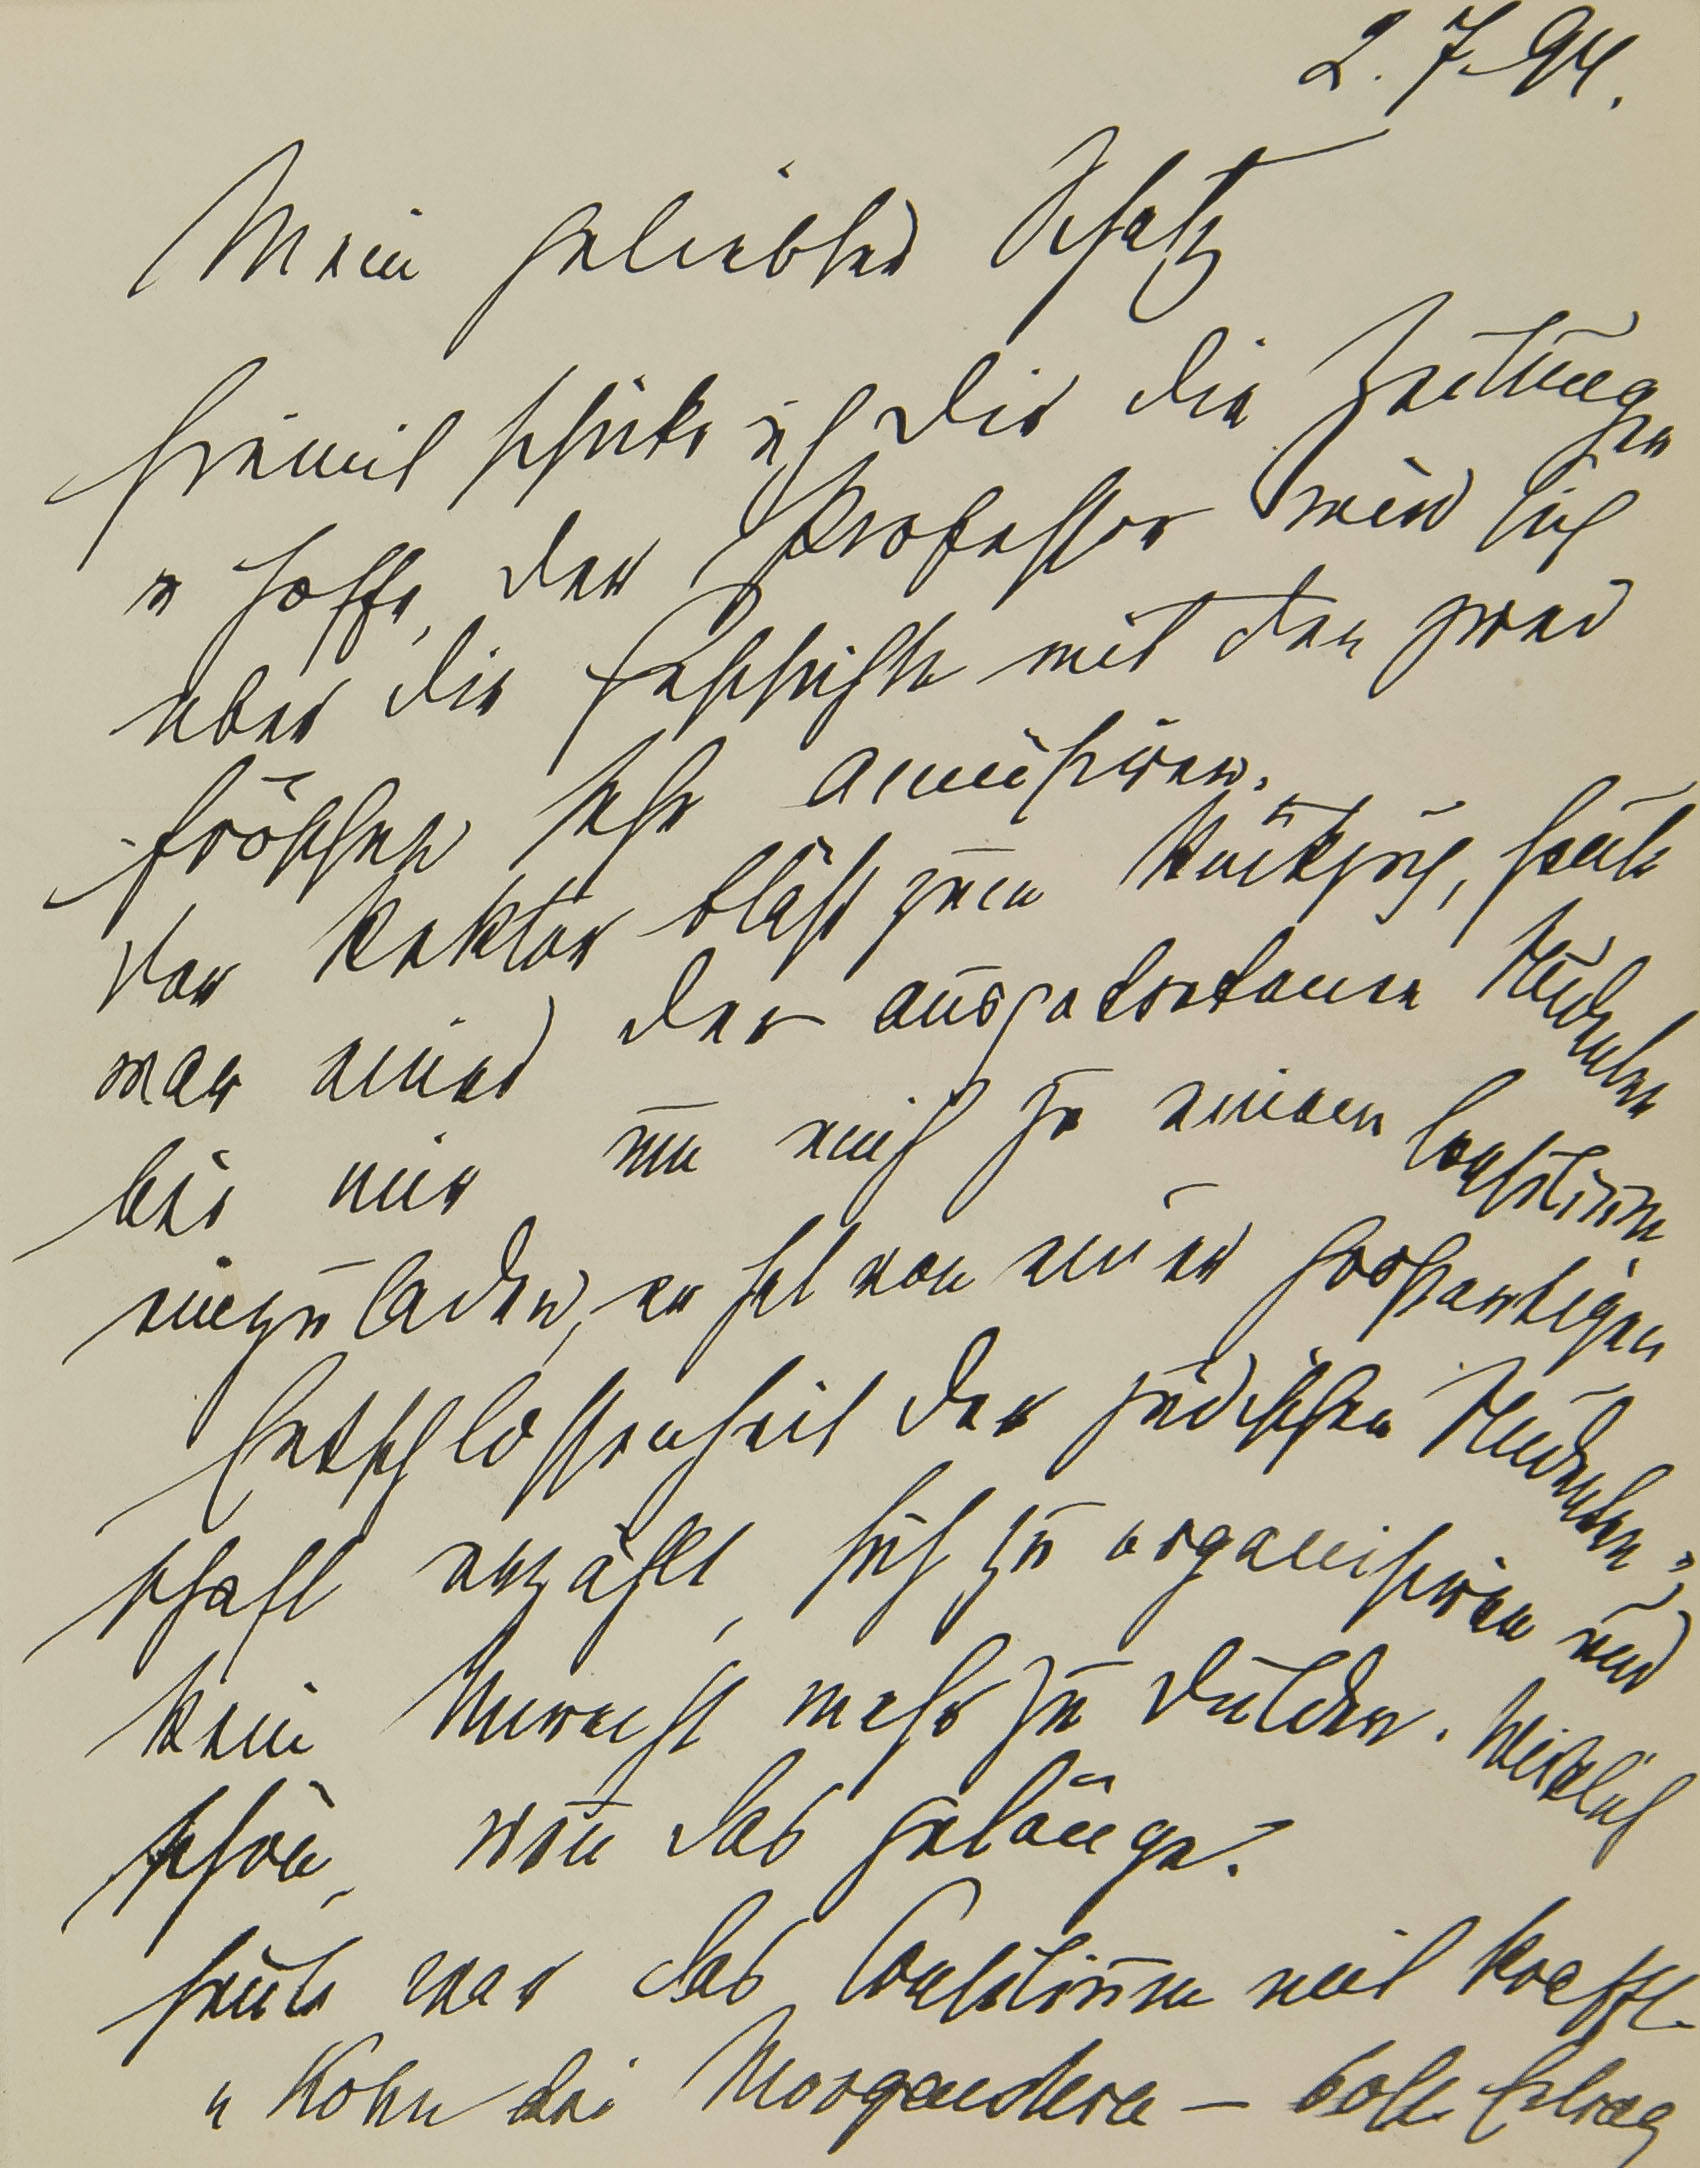 2. 7. 94.
Mein geliebter Schatz
hiemit schicke ich Dir die Zeitungen
u hoffe, der Professor wird sich
über die Geschichte mit den zwei
Fröschen sehr amüsiren.
Der Rektor bläst zum Rückzug, heute
war einer der ausgetretenen Studenten
bei mir um mich zu einem Consilium
einzuladen, er hat von einer großartigen
Entschlossenheit der jüdischen Studenten-
schaft erzählt, sich zu organisiren und
kein Unrecht mehr zu dulden. Wirklich
schön, wenn das gelänge.
Heute war das Consilium mit
u Kohn bei Morgenstern –